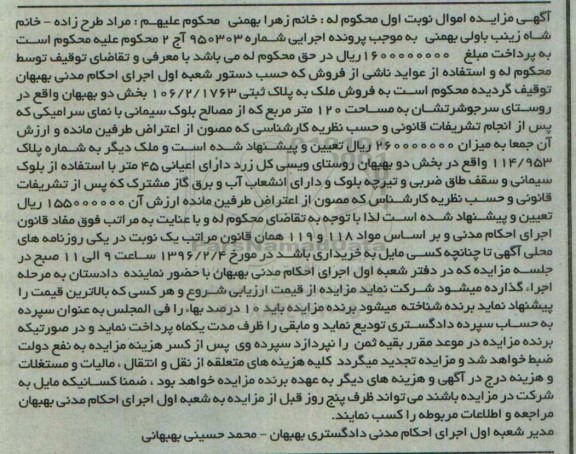 آگهی مزایده اموال نوبت اول محکوم له : خانم زهرا بهمنی محکوم علیهم : مراد طرح زاده - خانم
شاه زینب باولی بهمنی به موجب پرونده اجرایی شماره ۹۵۰۳۰۳ آج ۲ محکوم علیه محکوم است
به پرداخت مبلغ ۱۶۰۰۰۰۰۰۰۰ ریال در حق محکوم له می باشد با معرفی و تقاضای توقیف توسط
محکوم له و استفاده از عواید ناشی از فروش که حسب دستور شعبه اول اجرای احکام مدنی بهبهان
توقیف گردیده محکوم است به فروش ملک به پلاک ثبتی ۱۰۶/۲/۱۷۶۳ بخش دو بهبهان واقع در
روستای سرجوشرتشان به مساحت ۱۲۰ متر مربع که از مصالح بلوک سیمانی با نمای سرامیکی که
پس از انجام تشریفات قانونی و حسب نظریه کارشناسی که مصون از اعتراض طرفین مانده و ارزش
آن جمعا به میزان ۲۶۰۰۰۰۰۰۰ ریال تعیین و پیشنهاد شده است و ملک دیگر به شماره پلاک
۱۱۴/۹۵۳ واقع در بخش دو بهبهان روستای ویسی کل زرد دارای اعیانی ۴۵ متر با استفاده از بلوک
سیمانی و سقف طاق ضربی و تیرچه بلوک و دارای انشعاب آب و برق گاز مشترک که پس از تشریفات
قانونی و حسب نظریه کارشناس که مصون از اعتراض طرفین مانده ارزش آن ۱۵۵۰۰۰۰۰۰ ریال
تعیین و پیشنهاد شده است لذا با توجه به تقاضای محکوم له و با عنایت به مراتب فوق مفاد قانون
اجرای احکام مدنی و بر اساس مواد ۱۱۸ و ۱۱۹ همان قانون مراتب یک نوبت در یکی روزنامه های
محلی آگهی تا چنانچه کسی مایل به خریداری باشد در مورخ ۱۳۹۶/۲/۴ ساعت ۹ الی ۱۱ صبح در
جلسه مزایده که در دفتر شعبه اول اجرای احکام مدنی بهبهان با حضور نماینده دادستان به مرحله
اجراء گذارده میشود شرکت نماید مزایده از قیمت ارزیابی شروع و هر کسی که بالاترین قیمت را
پیشنهاد نماید برنده شناخته میشود برنده مزایده باید ۱۰ درصد بهاء را فی المجلس به عنوان سپرده
به حساب سپرده دادگستری تودیع نماید و مابقی را ظرف مدت یکماه پرداخت نماید و در صورتیکه
برنده مزایده در موعد مقرر بقیه ثمن را نپردازد سپرده وی پس از کسر هزینه مزایده به نفع دولت
ضبط خواهد شد و مزایده تجدید میگردد کلیه هزینه های متعلقه از نقل و انتقال ، مالیات و مستغلات
و هزینه درج در آگهی و هزینه های دیگر به عهده برنده مزایده خواهد بود ، ضمنا کسانیکه مایل به
شرکت در مزایده باشند می تواند ظرف پنج روز قبل از مزایده به شعبه اول اجرای احکام مدنی بهبهان
مراجعه و اطلاعات مربوطه را کسب نمایند.
مدیر شعبه اول اجرای احکام مدنی دادگستری بهبهان - محمد حسینی بهبهانی